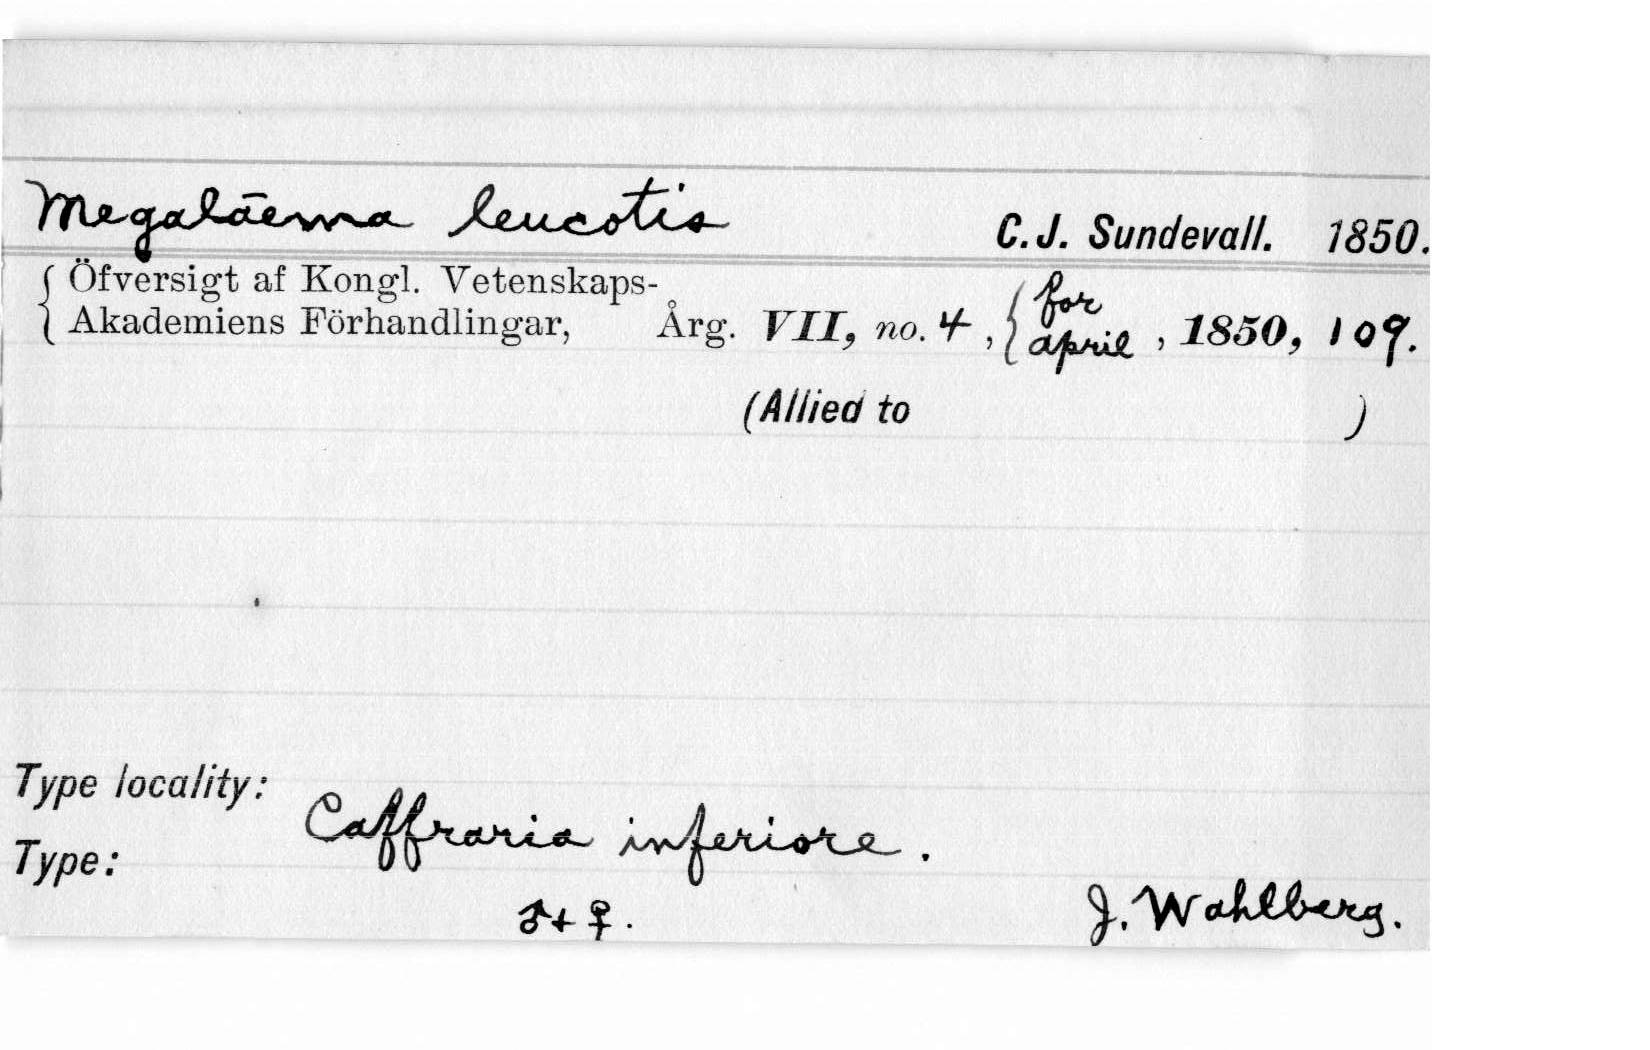 Megalāema leucotis C. J. Sundevall. 1850.
{ Öfversigt af Kongl. Vetenskaps-
{ Akademiens Förhandlingar, Årg. VII, no. 4, { for april, 1850, 109.
(Allied to )
Type locality: Caffraria inferiore.
Type: ♂ + ♀. J. Wahlberg.